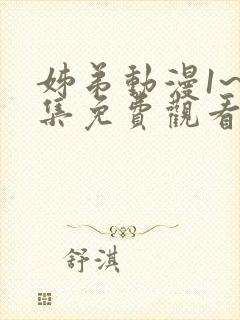 姊弟動漫1~
集免費觀看
舒淇